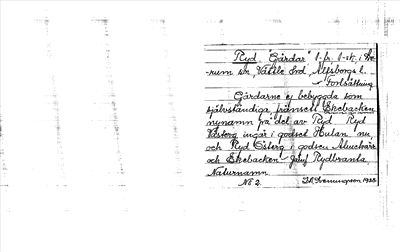 Ryd "Gårdar" 1. fr. 1-st. i
-rum sn, Vättle hrd, Älfsborgs l.
Fortsättning
Gårdarne ej bebyggda som
självständiga, frånsett Ekebacken
nynamn på del av Ryd Ryd
Västerg ingår i godset Hulan nu
och Ryd Österg i godsen
och Ekebacken Jämf Rydbranta,
Naturnamn.
No 2. 1925